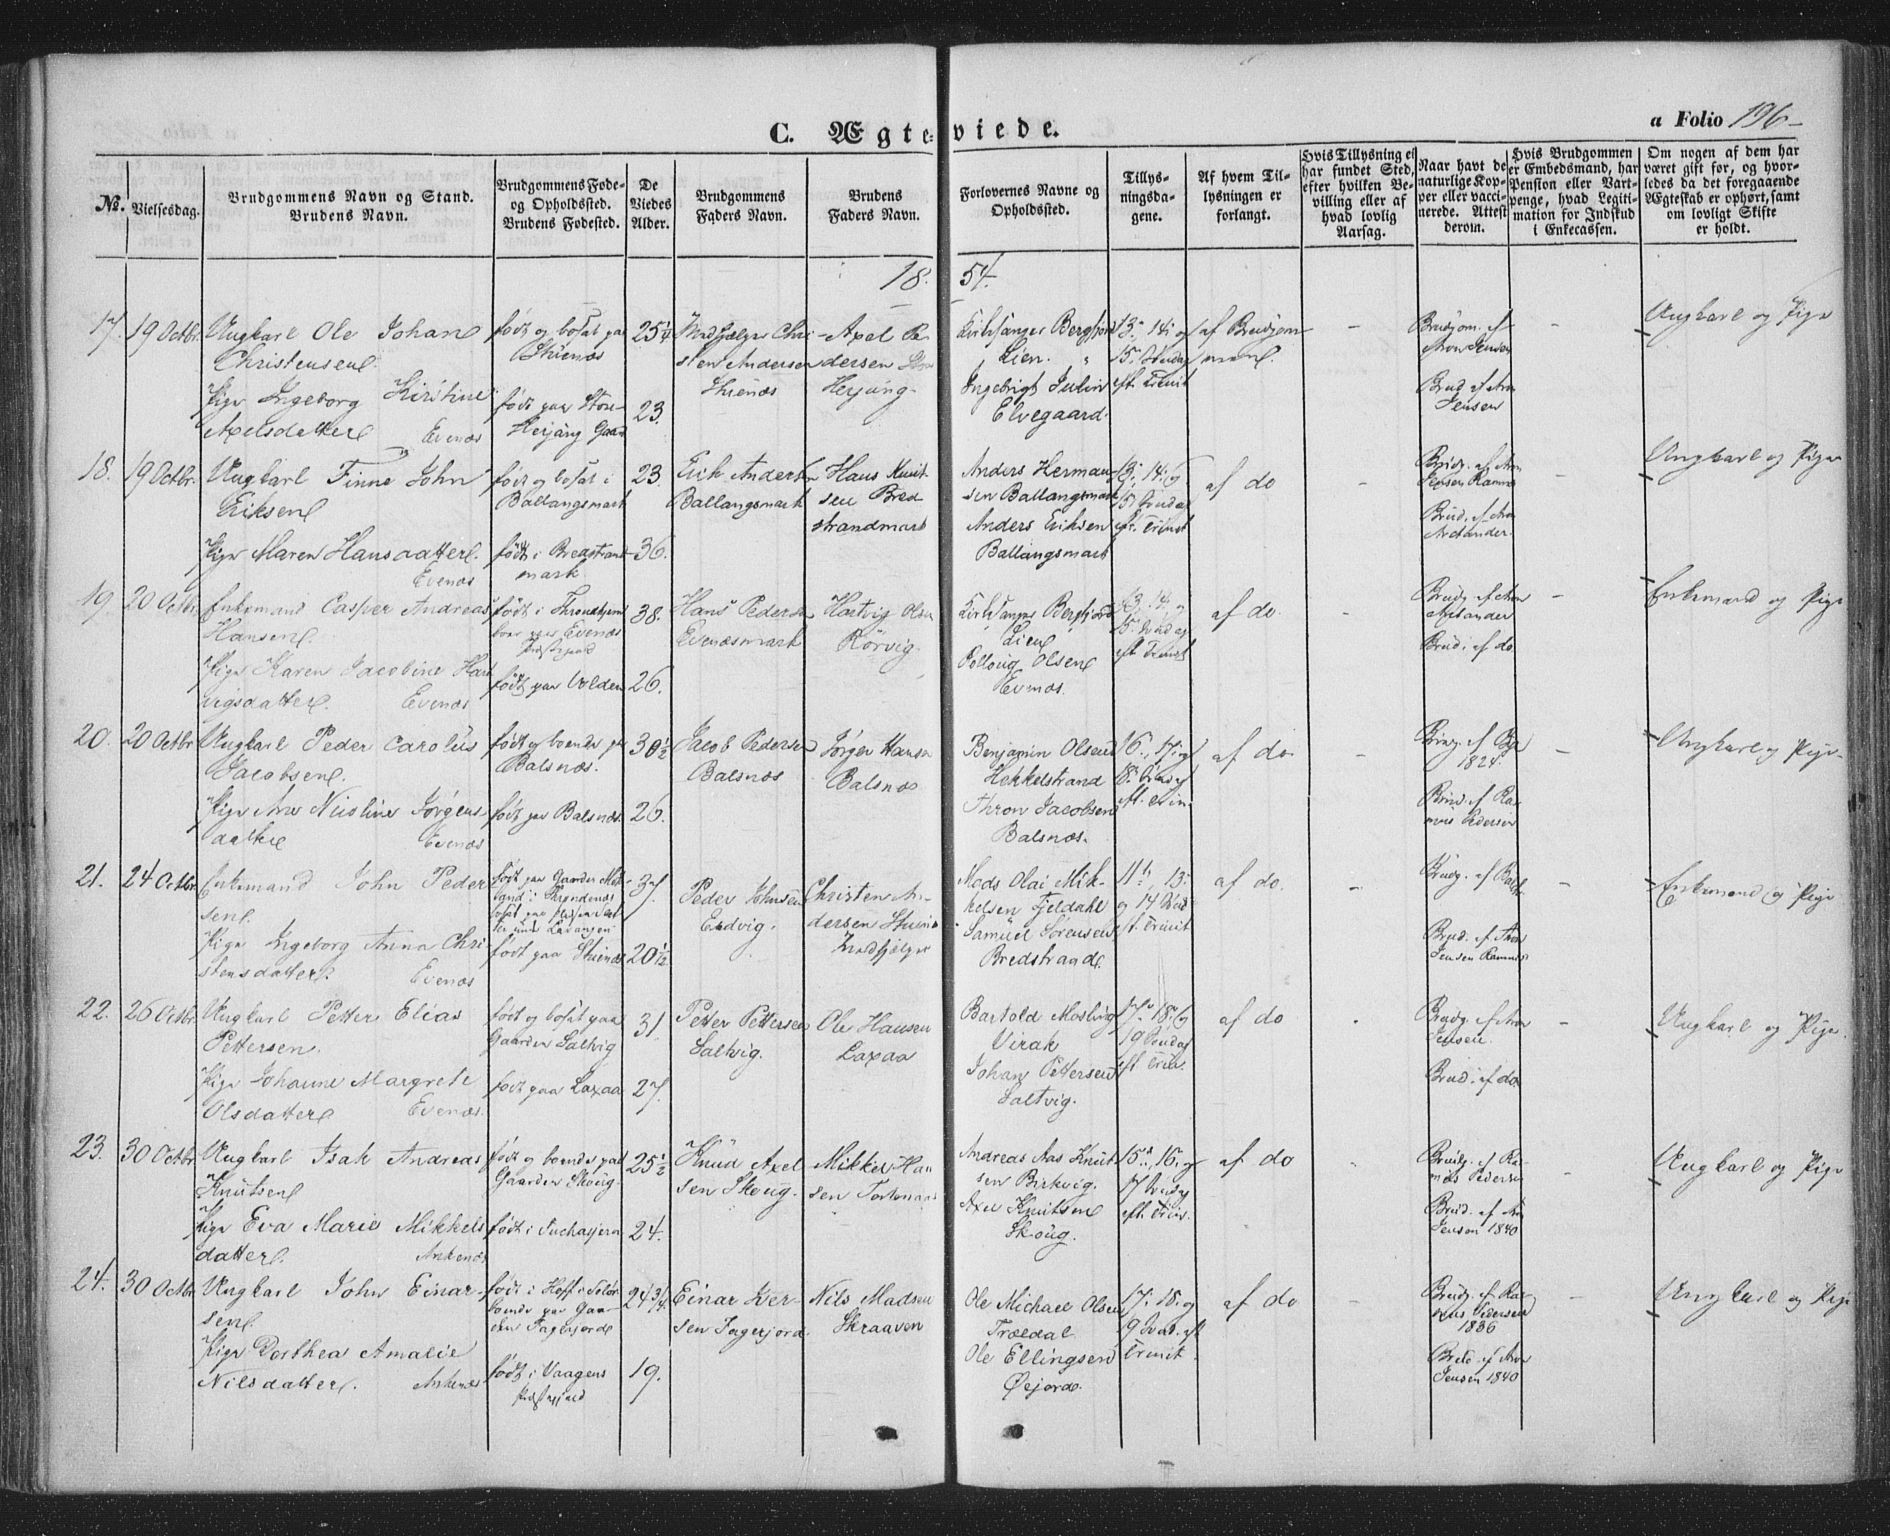 C. Ægteviede.
a Folio 196
No.
Vielsesdag.
Brudgommens Navn og Stand.
Brudens Navn.
Brudgommens Føde-
og Opholdssted.
Brudens Fødested.
De
Viedes
Alder.
Brudgommens
Faders Navn.
Brudens
Faders Navn.
Forlovernes Navne og
Opholdssted.
Tillys-
ningsda-
gene.
Af hvem Til-
lysningen er
forlangt.
Hvis Tillysning ei
har fundet Sted,
efter hvilken Be-
villing eller af
hvad lovlig
Aarsag.
Naar havt de
naturlige Kop-
per eller vacci-
nerede. Attest
derom.
Hvis Brudgommen
er Embedsmand, har
Pension eller Vart-
penge, hvad Legiti-
mation for Indskud
i Enkecassen.
Om nogen af dem har
været gift før, og hvor-
ledes da det foregaaende
Ægteskab er ophørt, samt
om lovligt Skifte
er holdt.
18 54.
17. 19 Octbr.
Ungkarl Ole Johan
Christensen.
Pige Ingeborg Kirstine
Axelsdatter Evenæs
født og bosat paa
Skienæs
født paa Store-
Herjang Gaard
25 1/4
23.
Indhjælper Chri-
sten Andersen
Skienæs
Axel Pe-
dersen
Herjang
Kirkesanger Bergfjord
Lien.
Ingebrigt Julin
Elvegaard.
13. 14. og
15. Søndag
eft. Trinit
af Brudgom
men.
Brudgom. af
Aron Jensen
Brud af Aron
Jensen
Ungkarl og Pige
18. 19 Octbr.
Ungkarl Finne John
Eriksen
Pige Maren Hansdatter.
Evenæs
født og bosat i
Ballangsmark
født i Bredstrand
mark
23.
36.
Erik Andersen
Ballangsmark
Hans Knut
sen Bred
strandmark
Anders Herman
sen Ballangsmark
Anders Eriksen
Ballangsmark
13. 14. og
15 Søndag
eft. Trinit
af do
Brudg. af Aron
Jensen Ramnæs
Brud. af Aron
Arctander.
Ungkarl og Pige
19. 20 Octbr
Enkemand Casper Andreas
Hansen.
Pige Karen Jacobine Hart
vigsdatter. Evenæs
født i Throndhjem
boer paa Evenæs
Præstegaard
født paa Volden
38.
26.
Hans Pedersen
Evenæsmark
Hartvig Olsen
Rørvig.
Kirkesanger Bergfjord
Lien
Olsen
Evenæs.
13. 14. og
15. Søndag
eft Trinit
af do
Brudg af Aron
Arctander
Brud. af do
Enkemand og Pige
20. 20 Octbr
Ungkarl Peder Carolus
Jacobsen.
Pige Ane Nicoline Jørgens
datter Evenæs
født og boende paa
Balsnæs.
født paa Balsnæs.
30 1/2
26.
Jacob Pedersen
Balsnæs
Jørgen Hansen
Balsnæs
Benjamin Olsen
Hekkelstrand
Thron Jacobsen
Balsnæs.
16. 17. og
18. Søndag
eft. Trin.
af do.
1824.
Brud. af Ras-
mus Pedersen
Ungkarl og Pige
21. 24 Octbr.
Enkemand John Peder
sen.
Pige Ingeborg Anna Chri
stensdatter. Evenæs
født paa Gaarden
i Throndenæs
bosat paa
Lavangen
født paa Skienæs
37.
20 1/2
Peder Johnsen
Erdvig.
Christen An-
dersen Skienæs
Indhjælper
Mads Olai Mik-
kelsen Fjeldahl
Samuel Sørensen
Bredstrand.
11te, 13.
og 14 Sønd
eft. Trinit
af do.
Brudg. af
Brud. af Aron
Jensen Ramnæs
Enkemand og Pige
22. 26 Octbr.
Ungkarl Petter Elias
Pettersen.
Pige Johanne Margrete
Olsdatter Evenæs.
født og bosat paa
Gaarden Saltvig
født paa Laxaa
31.
27.
Petter Pettersen
Saltvig.
Ole Hansen
Laxaa
Bartold Mosling
Virak
Johan Pettersen
Saltvig.
17. 18. og
19 Søndag
eft Trin.
af do
Brudg. af Aron
Jensen.
Brud. af do
Ungkarl og Pige.
23. 30 Octbr.
Ungkarl Isak Andreas
Knutsen
Pige Eva Marie Mikkels
datter. Ankenæs
født og boende paa
Gaarden Skoug
født i Juckasjervi
25 1/2
24.
Knud Axel
sen Skoug.
Mikkel Han
sen
Andreas Aas Knut
sen Birkvig.
Axel Knutsen
Skoug.
15de, 16. og
17 Søndag
eft Trin.
af do
Brudg. af Ras-
mus Pedersen
Brud. af Aron
Jensen 1840
Ungkarl og Pige
24. 30 Octbr
Ungkarl John Einar-
sen.
Pige Dorthea Amalie
Nilsdatter. Ankenæs
født i Hoff i Solør
boende paa Gaar-
den Fagerjord
født i Vaagens
Præstegjeld
24 3/4.
19.
Einar Iver-
sen Fagerjord
Nils Madsen
Skraaven
Ole Michael Olsen
Trældal
Ole Ellingsen
Øijord.
17. 18. og
19 Sønd. eft
Trinit.
af do
Brudg. af Ras-
mus Pedersen
1836
Brud. af Aron
Jensen 1840
Ungkarl og Pige